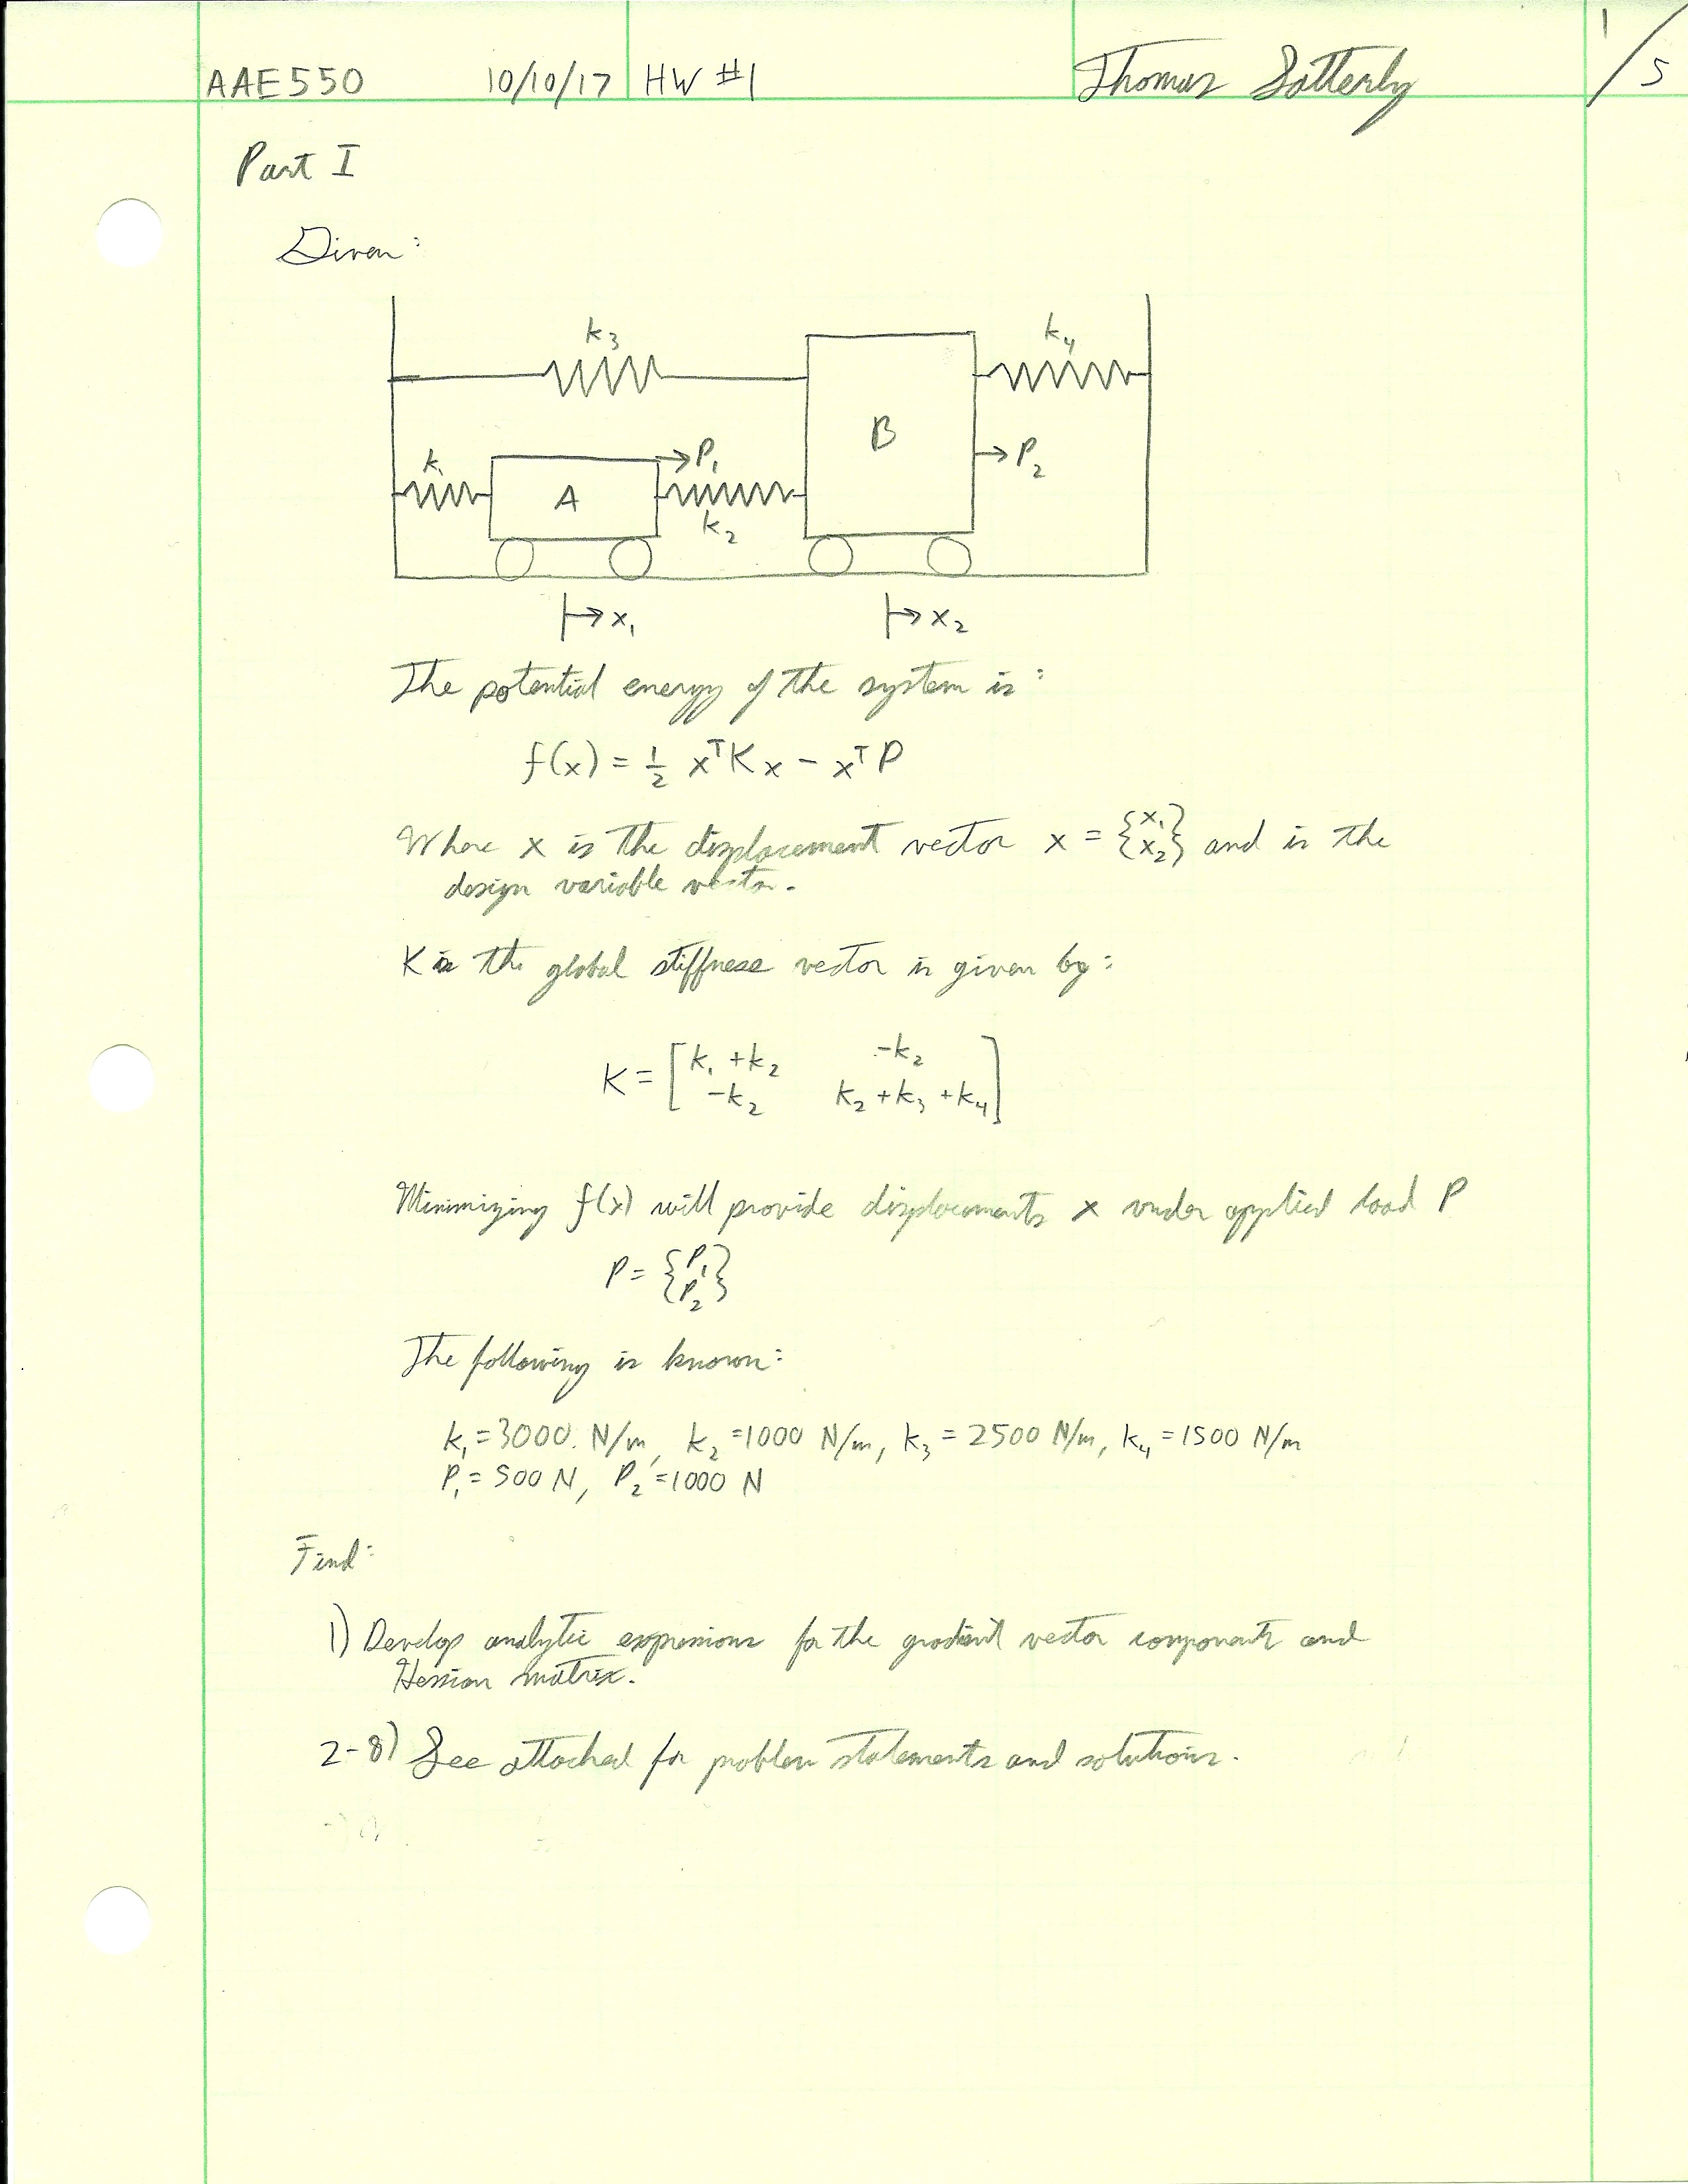 AAE550 10/10/17 HW #1 Thomas Satterly 1/5
Part I
Given:
k₃ k₄
B
k₁ P₁ P₂
A
k₂
x₁ x₂
The potential energy of the system is:
f(x) = ½ xᵀKx - xᵀP
Where x is the displacement vector x = {x₁ x₂} and is the
design variable vector.
K is the global stiffness vector is given by:
K = [k₁+k₂ -k₂
-k₂ k₂+k₃+k₄]
Minimizing f(x) will provide displacements x under applied load P
P = {P₁ P₂}
The following is known:
k₁=3000. N/m, k₂=1000 N/m, k₃=2500 N/m, k₄=1500 N/m
P₁=500 N, P₂=1000 N
Find:
1) Develop analytic expressions for the gradient vector components and
Hessian matrix.
2-8) See attached for problem statements and solutions.